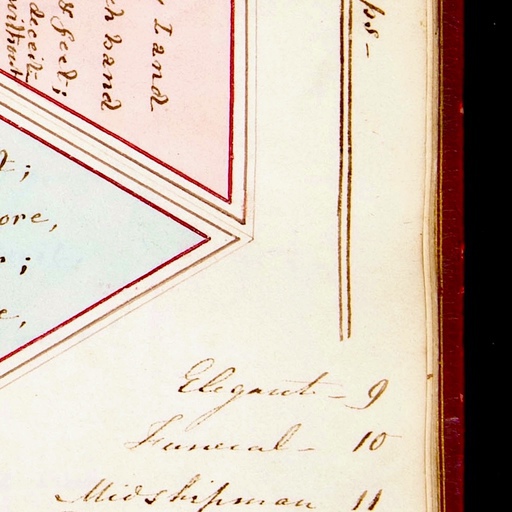 I and
ch band
& feet;
deceit
without
ps-
t;
ore,
r;
e,
Elegant - 9
Funeral - 10
Midshipman 11